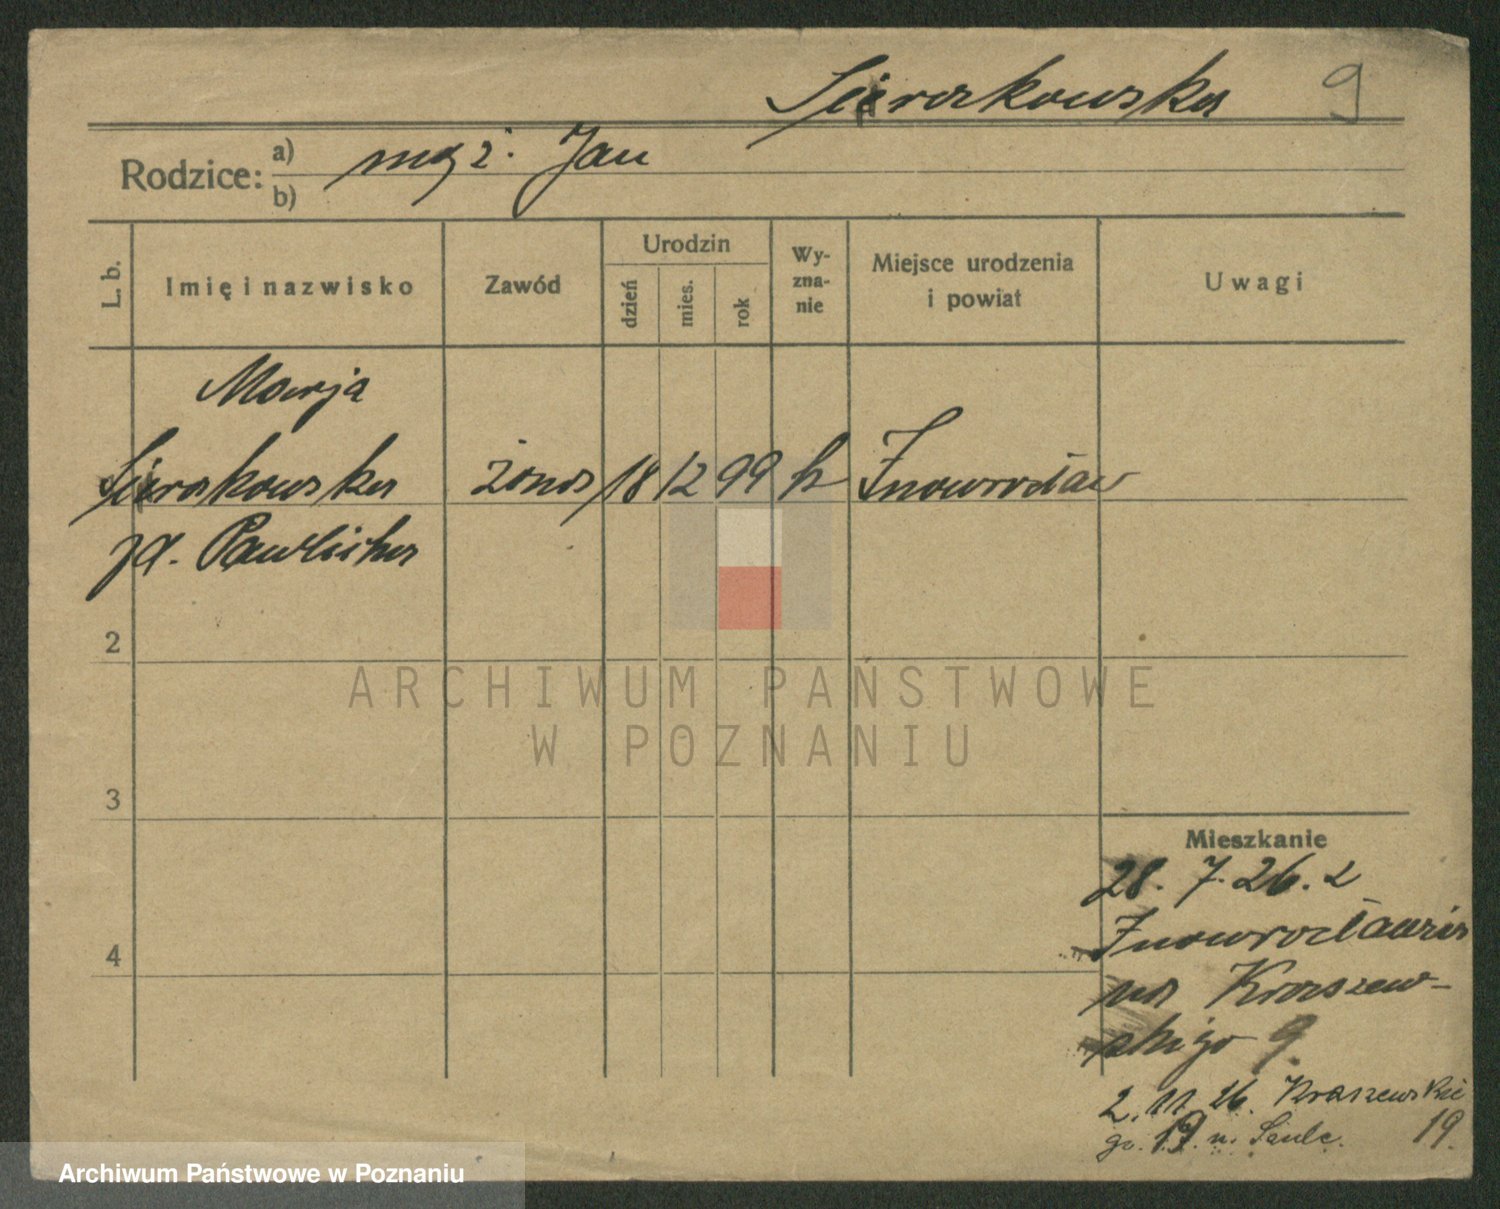 Sierakowska 9
Rodzice: a) mąż. Jan
b)
L. b. Imię i nazwisko Zawód Urodzin dzień mies. rok Wyznanie Miejsce urodzenia i powiat Uwagi
Marja
Sierakowska żona 18 12 99 k Inowrocław
zd. Pawlicka
2
3
4
Mieszkanie
28. 7. 26. z
Inowrocławia
na Kraszew-
skiego 9.
2. 11. 26. Kraszewskie
go. 19 u. 19.
ARCHIWUM PAŃSTWOWE
W POZNANIU
Archiwum Państwowe w Poznaniu